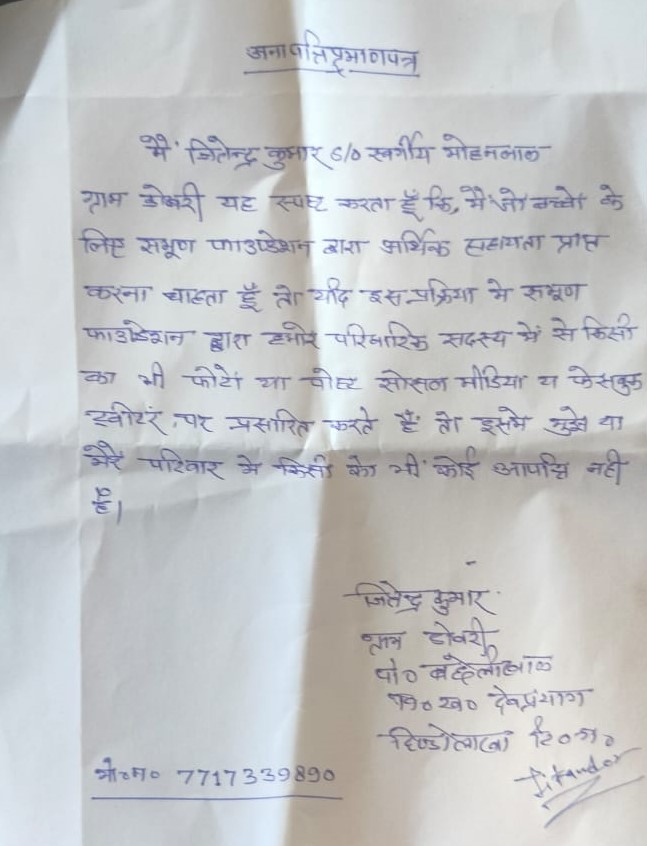 अनापत्तिप्रमाणपत्र
मैं जितेन्द्र कुमार S/O स्वर्गीय मोहनलाल
ग्राम डोबरी यह स्पष्ट करता हूँ कि, मैं जो बच्चो के
लिए सम्पूण फाउण्डेशन द्वारा आर्थिक सहायता प्राप्त
करना चाहता हूँ तो यदि इस प्रक्रिया मे सम्पूण
फाउण्डेशन द्वारा हमारे परिवारिक सदस्य में से किसी
का भी फोटो या पोस्ट सोसल मीडिया य फेसबुक
ट्वीटर पर प्रसारित करते हैं तो इसमे मुझे या
मेरे परिवार मे किसी को भी कोई आपत्ति नही
है।
जितेन्द्र कुमार
ग्राम डोबरी
पो०
वि० ख० देवप्रयाग
हिण्डोलाखाल टि० ग०
मो० न० 7717339890